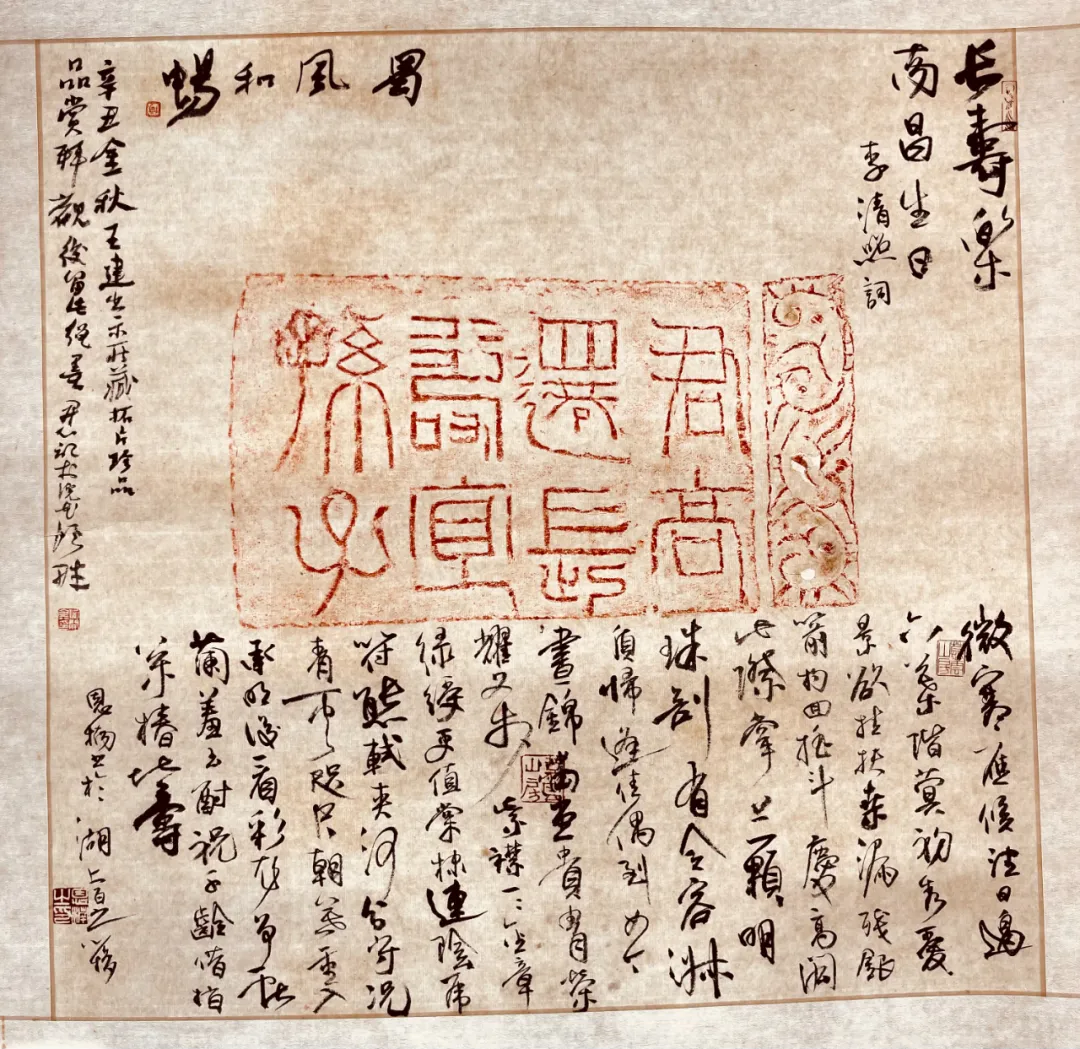 长壽樂
南昌生日
李清照詞
蜀風和暢
君高
遷長
壽宜
孫子
微寒應候望日邊
六葉階蓂初秀愛
景欲挂扶桑漏殘銀
箭杓回摇斗慶高闳
此際掌上一顆明
珠剖有令容淑
質歸逢佳偶到如今
晝錦滿堂貴胄榮
耀文步紫襟一一金章
绿綬更值棠棣連陰虎
符熊軾夾河分守况
青雲咫尺朝暮重入
承明後看彩衣争獻
蘭羞玉酎祝千齡借指
松椿比壽
書於湖上
辛丑金秋王建出示所藏拓片珍品
品赏拜觀後留此